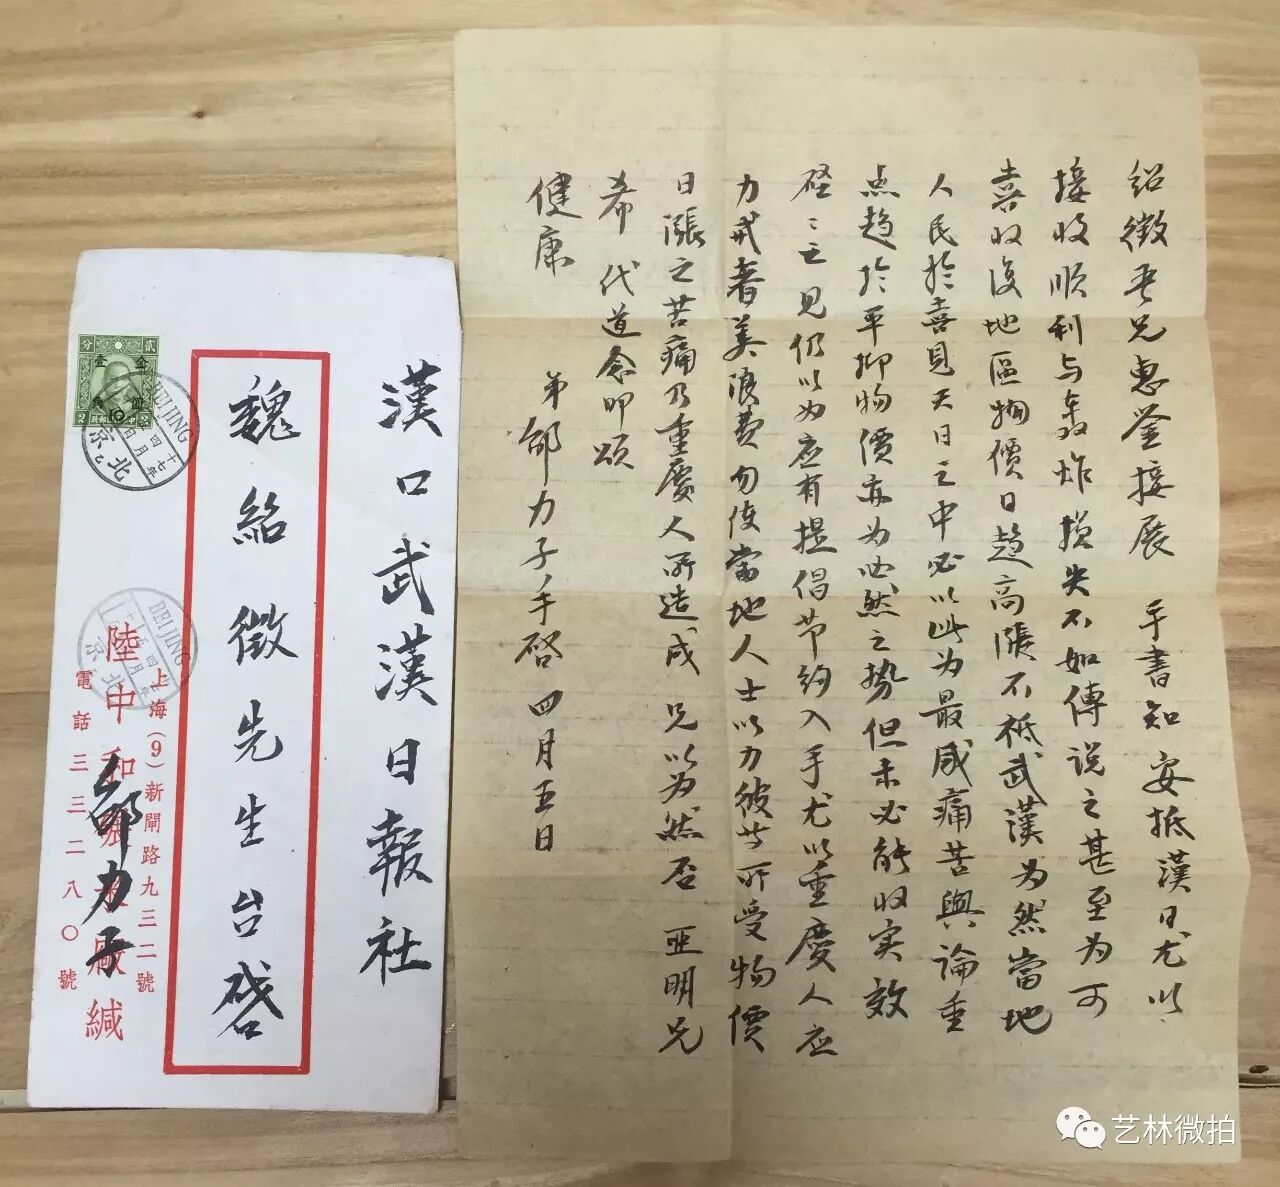 紹徵吾兄惠鉴接展 手書知 安抵漢日尤以
接收順利与轰炸損失不如傳說之甚至为可
喜收復地區物價日趋高漲不祇武漢为然當地
人民於喜見天日之中必以此为最感痛苦輿論重
点趋於平抑物價亦为必然之势但未必能收实效
硁〻之見仍以为应有提倡节约入手尤以重慶人应
力戒奢美浪費勿使當地人士以力彼等所受物價
日漲之苦痛乃重慶人所造成 兄以为然否 亜明兄
希 代道念叩頌
健康
弟邵力子手啓四月五日
漢口武漢日報社
魏紹徵先生台啓
上海(9)新閘路九三二號
陸中和 廠緘
電話三三二八〇號
邵力子
貳 分
金 壹
圓
10
2 2
BEIJING
北京
BEIJING
北京
艺林微拍